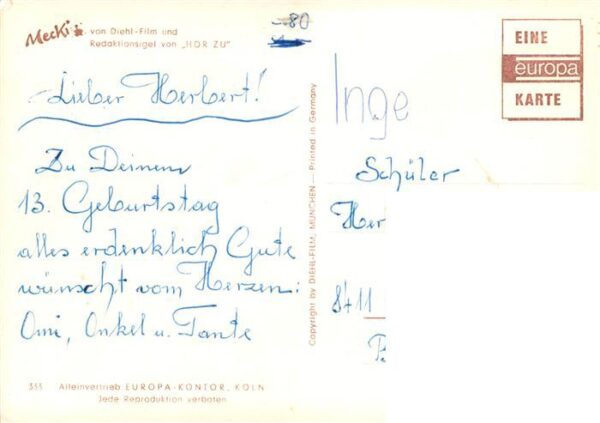 Mecki von Diehl-Film und
Redaktionsigel von „HÖR ZU"
-.80
EINE
europa
KARTE
Lieber Herbert!
Zu Deinem
13. Geburtstag
alles erdenklich Gute
wünscht vom Herzen:
Omi, Onkel u. Tante
Copyright by DIEHL-FILM, MÜNCHEN — Printed in Germany
Inge
Schüler
Her
8411
355 Alleinvertrieb EUROPA-KONTOR, KÖLN
Jede Reproduktion verboten